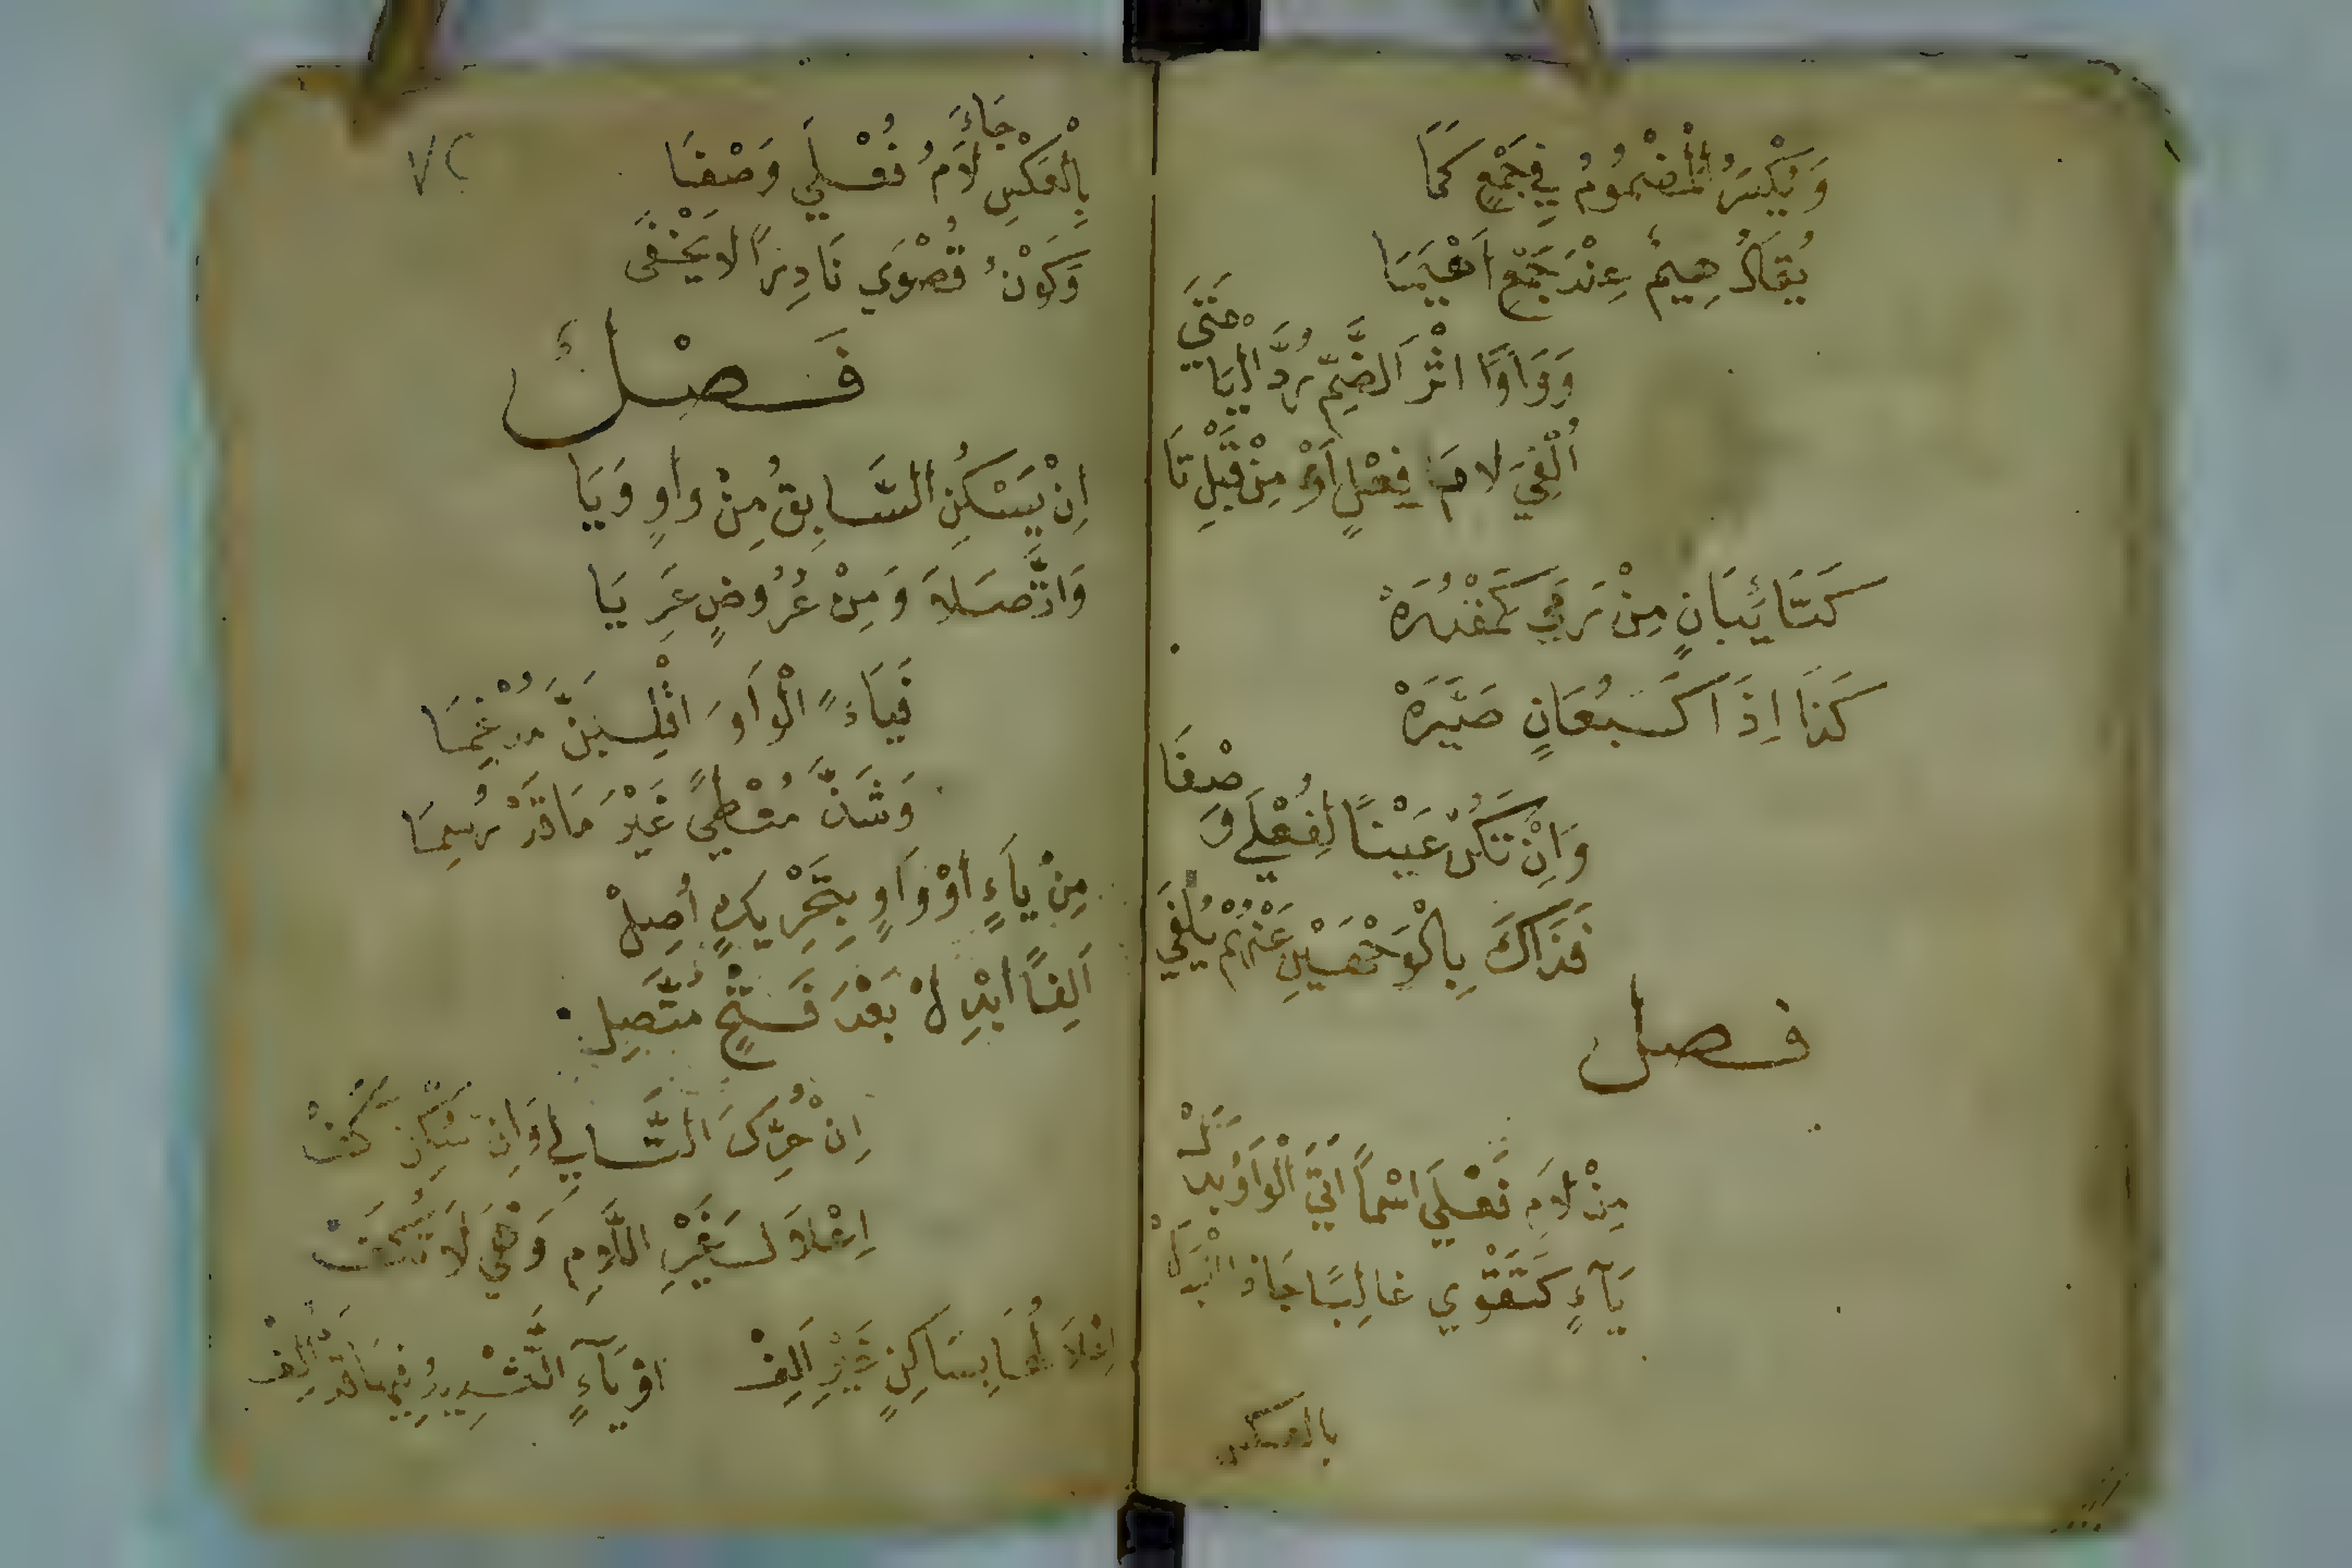 وَيُكْسَرُ الْمَضْمُومُ فِي جَمْعٍ كَمَا
يُقَالُ هِيمٌ عِنْدَ جَمْعِ اَهْيَمَا
وَوَاوًا اثْرَ الضَّمِّ رُدَّ الْيَا مَتَى
اُلْفِيَ لَامَ فِعْلٍ اَوْ مِنْ قَبْلِ تَا
كَتَاءِ بَانٍ مِنْ رَمَى كَمَقْدُرَهْ
كَذَا اِذَا كَسَبُعَانٍ صَيَّرَهْ
وَاِنْ تَكُنْ عَيْنًا لِفُعْلَى وَصْفَا
فَذَاكَ بِالْوَجْهَيْنِ عَنْهُمْ يُلْفَى
فصل
مِنْ لَامِ فَعْلَى اسْمًا اَتَى الْوَاوُ بَدَلْ
يَآءٍ كَتَقْوَى غَالِبًا جَا ذَا الْبَدَلْ
بالعكس
٧٢
بِالْعَكْسِ جَاءَ لَامُ فُعْلَى وَصْفَا
وَكَوْنُ قُصْوَى نَادِرًا لَا يَخْفَى
فَصْلٌ
اِنْ يَسْكُنِ السَّابِقُ مِنْ وَاوٍ وَيَا
وَاتَّصَلَا وَمِنْ عُرُوضٍ عَرِيَا
فَيَاءً الْوَاوَ اقْلِبَنَّ مُدْغِمَا
وَشَذَّ مُعْطًى غَيْرَ مَا قَدْ رُسِمَا
مِنْ يَاءٍ اَوْ وَاوٍ بِتَحْرِيكٍ اُصِلْ
اَلِفًا ابْدِلْ بَعْدَ فَتْحٍ مُتَّصِلْ
اِنْ حُرِّكَ التَّالِي وَاِنْ سُكِّنَ كَفّْ
اِعْلَالَ غَيْرِ اللَّامِ وَهْيَ لَا تُكَفّْ
اِعْلَالُهَا بِسَاكِنٍ غَيْرِ اَلِفْ اوْ يَآءٍ التَّشْدِيدُ فِيهَا قَدْ اُلِفْ